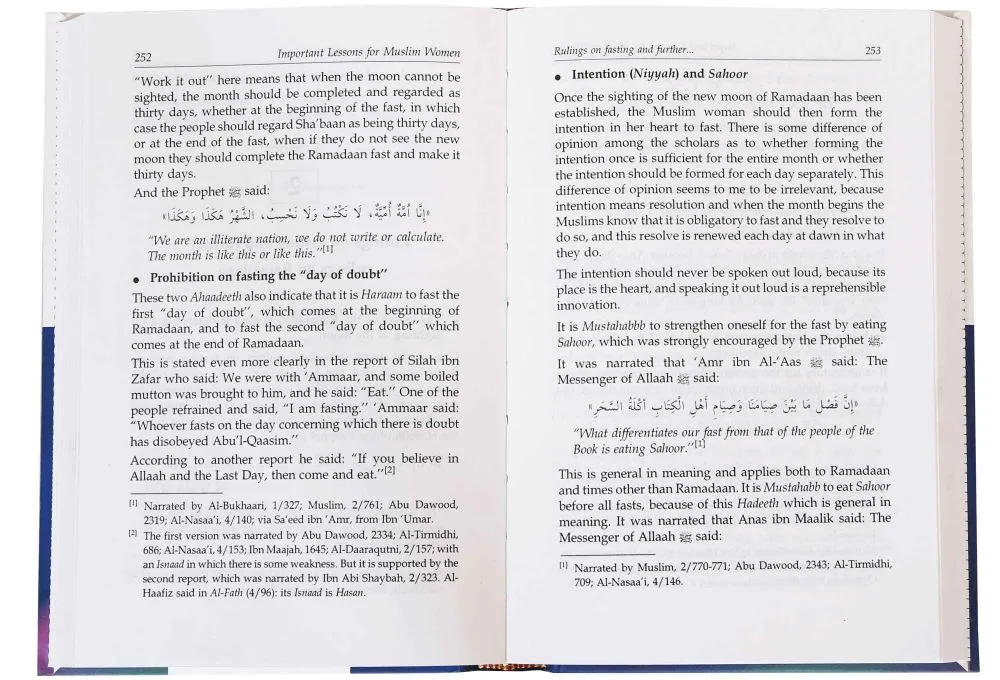 252 Important Lessons for Muslim Women
“Work it out” here means that when the moon cannot be
sighted, the month should be completed and regarded as
thirty days, whether at the beginning of the fast, in which
case the people should regard Sha’baan as being thirty days,
or at the end of the fast, when if they do not see the new
moon they should complete the Ramadaan fast and make it
thirty days.
And the Prophet ﷺ said:
«إِنَّا أُمَّةٌ أُمِّيَّةٌ، لَا نَكْتُبُ وَلَا نَحْسِبُ، الشَّهْرُ هَكَذَا وَهَكَذَا»
“We are an illiterate nation, we do not write or calculate.
The month is like this or like this.”[1]
• Prohibition on fasting the “day of doubt”
These two Ahaadeeth also indicate that it is Haraam to fast the
first “day of doubt”, which comes at the beginning of
Ramadaan, and to fast the second “day of doubt” which
comes at the end of Ramadaan.
This is stated even more clearly in the report of Silah ibn
Zafar who said: We were with ‘Ammaar, and some boiled
mutton was brought to him, and he said: “Eat.” One of the
people refrained and said, “I am fasting.” ‘Ammaar said:
“Whoever fasts on the day concerning which there is doubt
has disobeyed Abu’l-Qaasim.”
According to another report he said: “If you believe in
Allaah and the Last Day, then come and eat.”[2]
[1] Narrated by Al-Bukhaari, 1/327; Muslim, 2/761; Abu Dawood,
2319; Al-Nasaa’i, 4/140; via Sa’eed ibn ‘Amr, from Ibn ‘Umar.
[2] The first version was narrated by Abu Dawood, 2334; Al-Tirmidhi,
686; Al-Nasaa’i, 4/153; Ibn Maajah, 1645; Al-Daaraqutni, 2/157; with
an Isnaad in which there is some weakness. But it is supported by the
second report, which was narrated by Ibn Abi Shaybah, 2/323. Al-
Haafiz said in Al-Fath (4/96): its Isnaad is Hasan.
Rulings on fasting and further... 253
• Intention (Niyyah) and Sahoor
Once the sighting of the new moon of Ramadaan has been
established, the Muslim woman should then form the
intention in her heart to fast. There is some difference of
opinion among the scholars as to whether forming the
intention once is sufficient for the entire month or whether
the intention should be formed for each day separately. This
difference of opinion seems to me to be irrelevant, because
intention means resolution and when the month begins the
Muslims know that it is obligatory to fast and they resolve to
do so, and this resolve is renewed each day at dawn in what
they do.
The intention should never be spoken out loud, because its
place is the heart, and speaking it out loud is a reprehensible
innovation.
It is Mustahabbb to strengthen oneself for the fast by eating
Sahoor, which was strongly encouraged by the Prophet ﷺ.
It was narrated that ‘Amr ibn Al-‘Aas ﷺ said: The
Messenger of Allaah ﷺ said:
«إِنَّ فَصْلَ مَا بَيْنَ صِيَامِنَا وَصِيَامِ أَهْلِ الْكِتَابِ أَكْلَةُ السَّحَرِ»
“What differentiates our fast from that of the people of the
Book is eating Sahoor.”[1]
This is general in meaning and applies both to Ramadaan
and times other than Ramadaan. It is Mustahabb to eat Sahoor
before all fasts, because of this Hadeeth which is general in
meaning. It was narrated that Anas ibn Maalik said: The
Messenger of Allaah ﷺ said:
[1] Narrated by Muslim, 2/770-771; Abu Dawood, 2343; Al-Tirmidhi,
709; Al-Nasaa’i, 4/146.